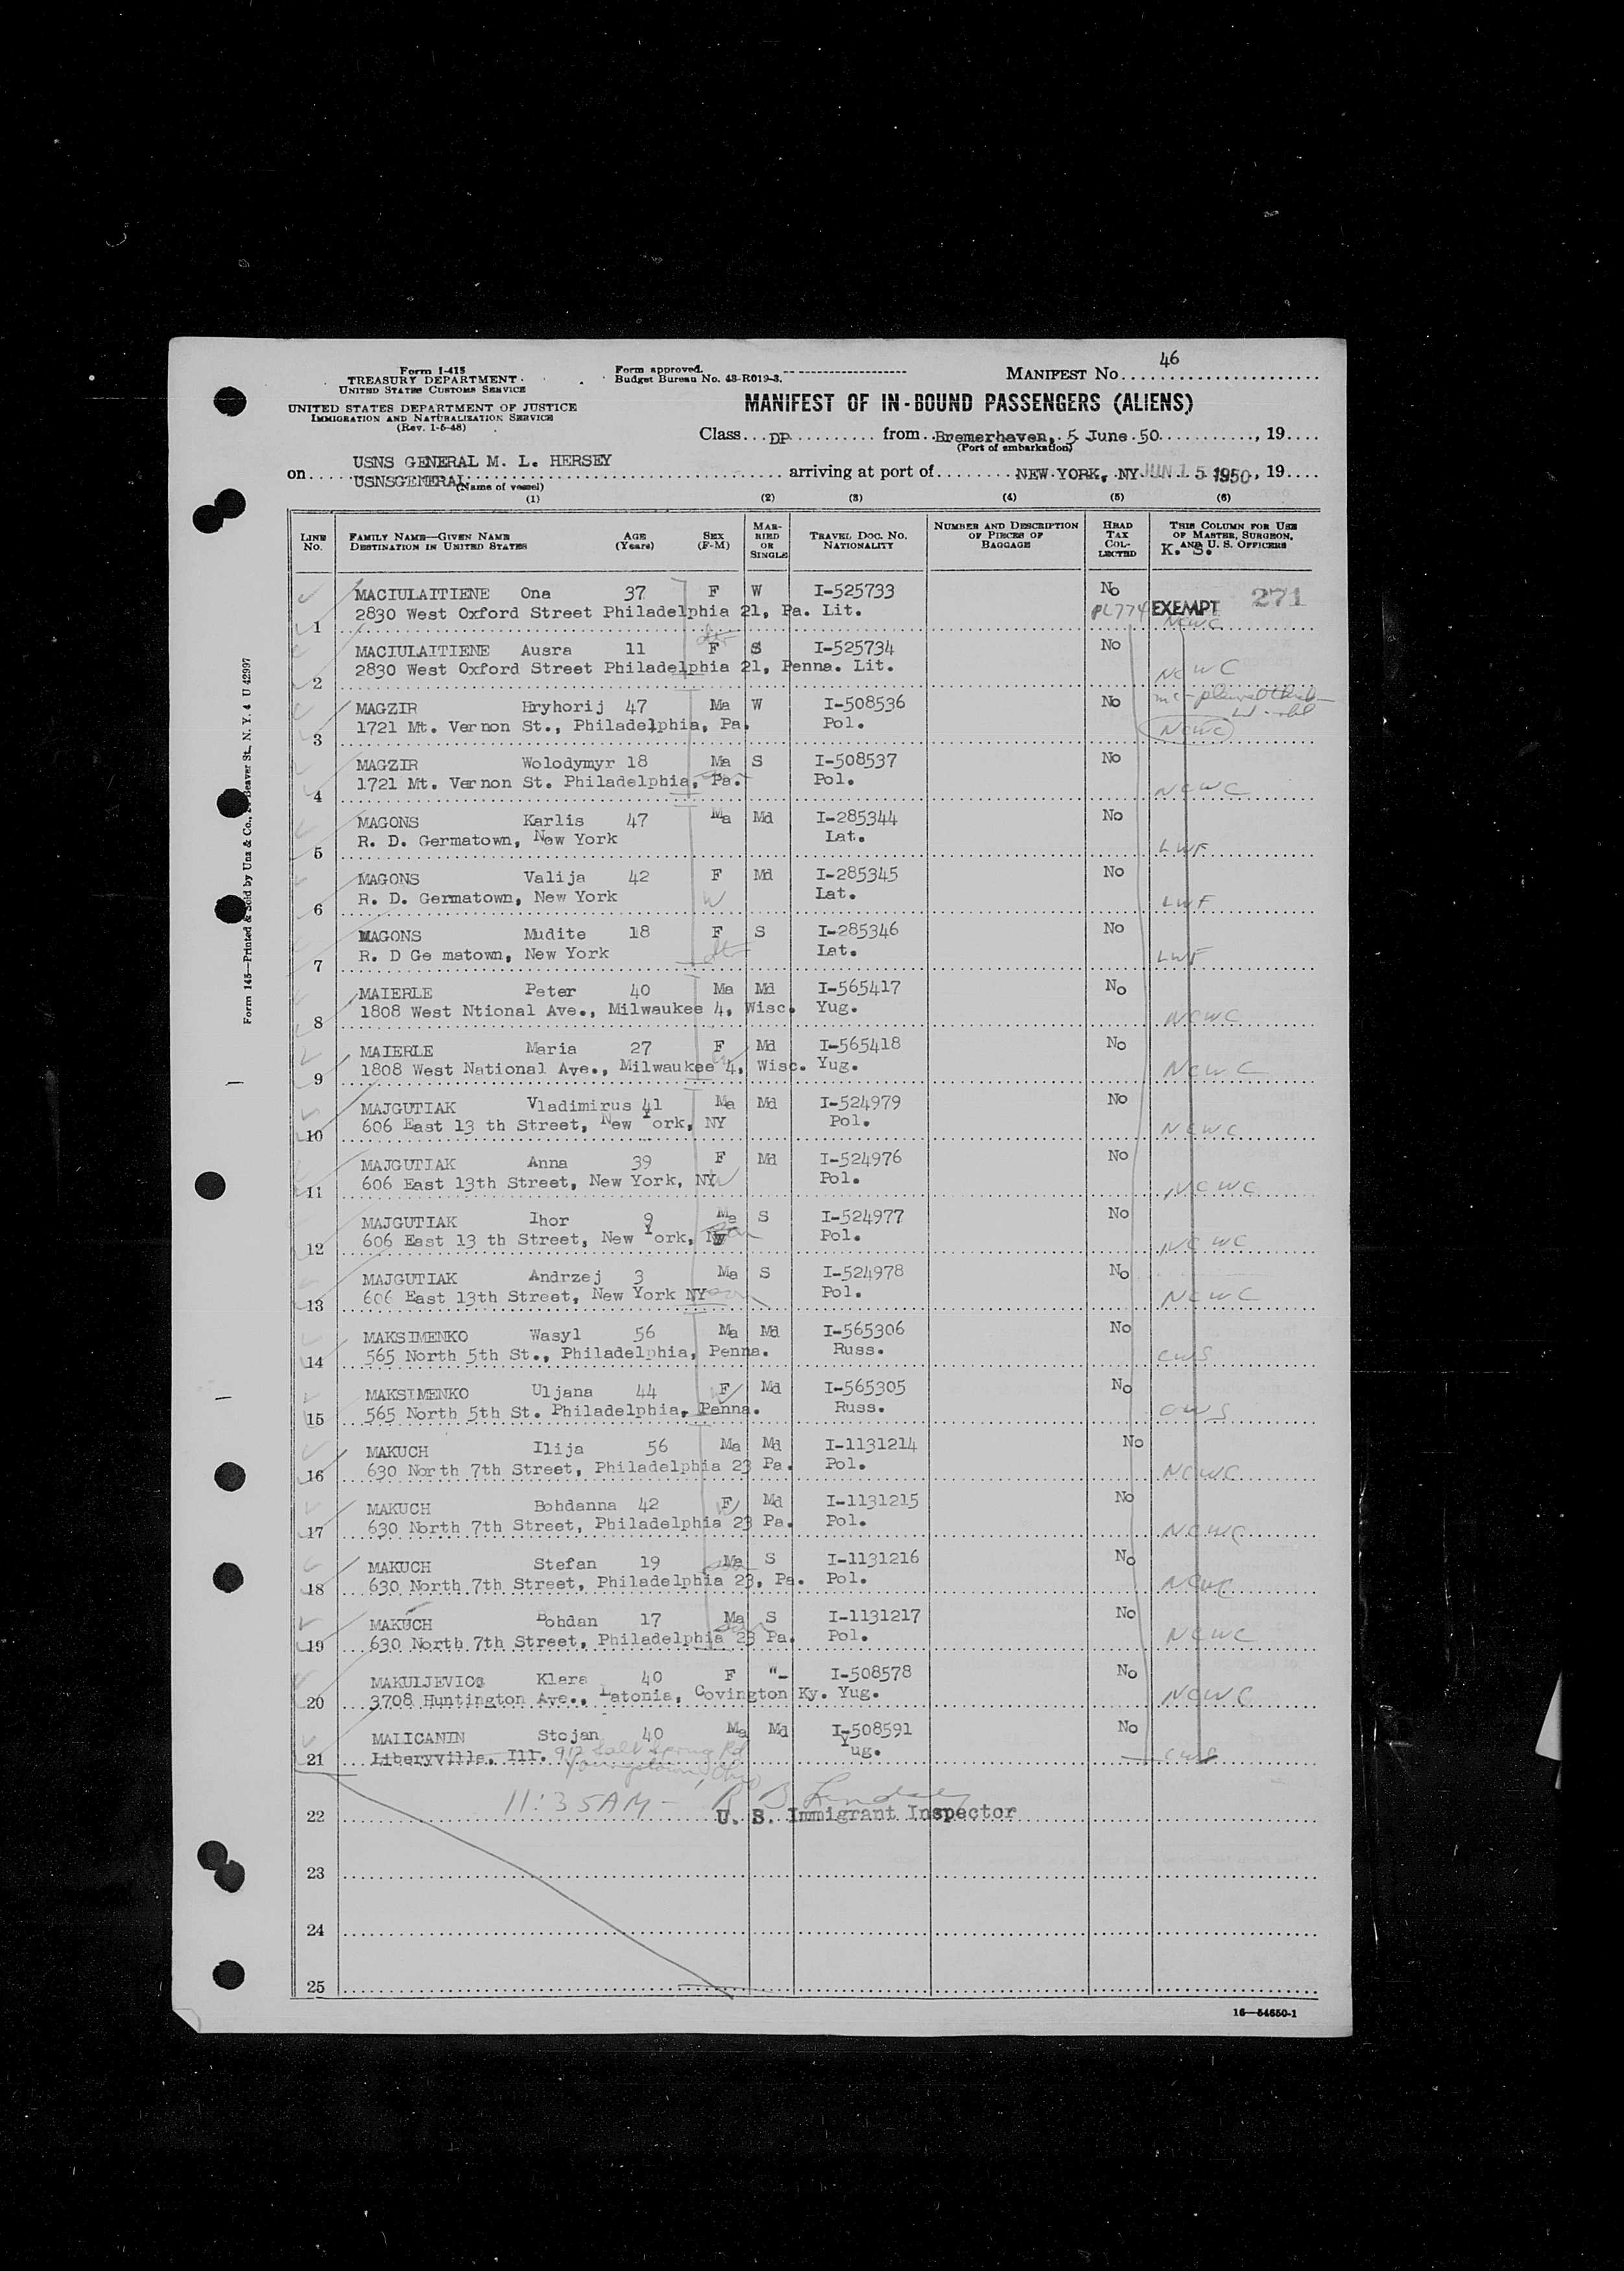 Form I-415
TREASURY DEPARTMENT
UNITED STATES CUSTOMS SERVICE
UNITED STATES DEPARTMENT OF JUSTICE
IMMIGRATION AND NATURALIZATION SERVICE
(Rev. 1-5-48)
Form approved.
Budget Bureau No. 43-R019-3.
MANIFEST No. 46
MANIFEST OF IN-BOUND PASSENGERS (ALIENS)
Class DP from Bremerhaven, 5 June 50, 19
(Port of embarkation)
USNS GENERAL M. L. HERSEY
on USNSGENERAL arriving at port of NEW YORK, NY JUN 15 1950, 19
(Name of vessel)
(1) (2) (3) (4) (5) (6)
LINE No. FAMILY NAME—GIVEN NAME DESTINATION IN UNITED STATES AGE (Years) SEX (F-M) MARRIED OR SINGLE TRAVEL DOC. NO. NATIONALITY NUMBER AND DESCRIPTION OF PIECES OF BAGGAGE HEAD TAX COLLECTED THIS COLUMN FOR USE OF MASTER, SURGEON, AND U. S. OFFICERS
K. S.
MACIULAITIENE Ona 37 F W I-525733 No 271
1 2830 West Oxford Street Philadelphia 21, Pa. Lit. PL774 EXEMPT NCWC
MACIULAITIENE Ausra 11 F S I-525734 No
2 2830 West Oxford Street Philadelphia 21, Penna. Lit. NCWC
MAGZIR Hryhorij 47 Ma W I-508536 No
3 1721 Mt. Vernon St., Philadelphia, Pa. Pol. NCWC
MAGZIR Wolodymyr 18 Ma S I-508537 No
4 1721 Mt. Vernon St. Philadelphia, Pa. Pol. NCWC
MAGONS Karlis 47 Ma Md I-285344 No
5 R. D. Germatown, New York Lat. LWF
MAGONS Valija 42 F Md I-285345 No
6 R. D. Germatown, New York W Lat. LWF
MAGONS Mudite 18 F S I-285346 No
7 R. D Ge matown, New York Lat. LWF
MAIERLE Peter 40 Ma Md I-565417 No
8 1808 West Ntional Ave., Milwaukee 4, Wisc. Yug. NCWC
MAIERLE Maria 27 F Md I-565418 No
9 1808 West National Ave., Milwaukee 4, Wisc. Yug. NCWC
MAJGUTIAK Vladimirus 41 Ma Md I-524979 No
10 606 East 13 th Street, New York, NY Pol. NCWC
MAJGUTIAK Anna 39 F Md I-524976 No
11 606 East 13th Street, New York, NY W Pol. NCWC
MAJGUTIAK Ihor 9 Ma S I-524977 No
12 606 East 13 th Street, New York, NY son Pol. NCWC
MAJGUTIAK Andrzej 3 Ma S I-524978 No
13 606 East 13th Street, New York NY son Pol. NCWC
MAKSIMENKO Wasyl 56 Ma Md I-565306 No
14 565 North 5th St., Philadelphia, Penna. Russ. CWS
MAKSIMENKO Uljana 44 F Md I-565305 No
15 565 North 5th St. Philadelphia, Penna. Russ. CWS
MAKUCH Ilija 56 Ma Md I-1131214 No
16 630 North 7th Street, Philadelphia 23 Pa. Pol. NCWC
MAKUCH Bohdanna 42 F Md I-1131215 No
17 630 North 7th Street, Philadelphia 23 Pa. Pol. NCWC
MAKUCH Stefan 19 Ma S I-1131216 No
18 630 North 7th Street, Philadelphia 23, Pa. Pol. NCWC
MAKUCH Bohdan 17 Ma S I-1131217 No
19 630 North 7th Street, Philadelphia 23 Pa. Pol. NCWC
MAKULJEVIC Klara 40 F "- I-508578 No
20 3708 Huntington Ave., Latonia, Covington Ky. Yug. NCWC
MALICANIN Stojan 40 Ma Md I-508591 No
21 Liberyville, Ill. 917 Salt Spring Rd Yug. CWS
Youngstown, Ohio
11:35AM - R B Lindsey
22 U. S. Immigrant Inspector
23
24
25
16—54650-1
Form 145—Printed & Sold by Unz & Co., Beaver St., N. Y. 4 U 42997